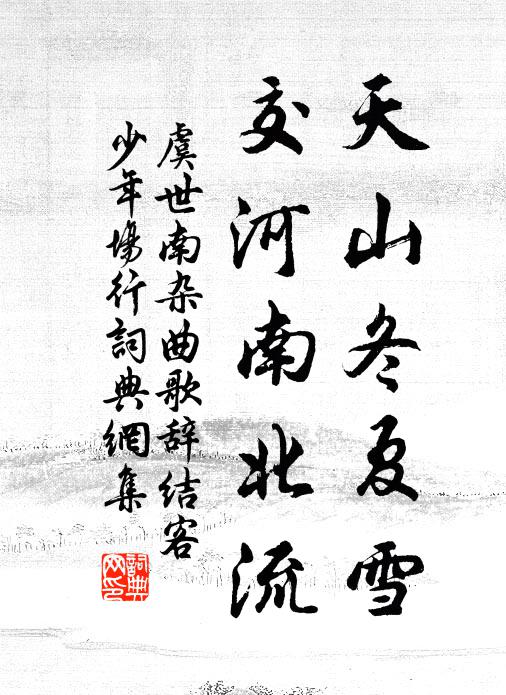 天山冬夏雪
交河南北流
虞世南杂曲歌辞结客
少年場行詞典網集
詞典
网印